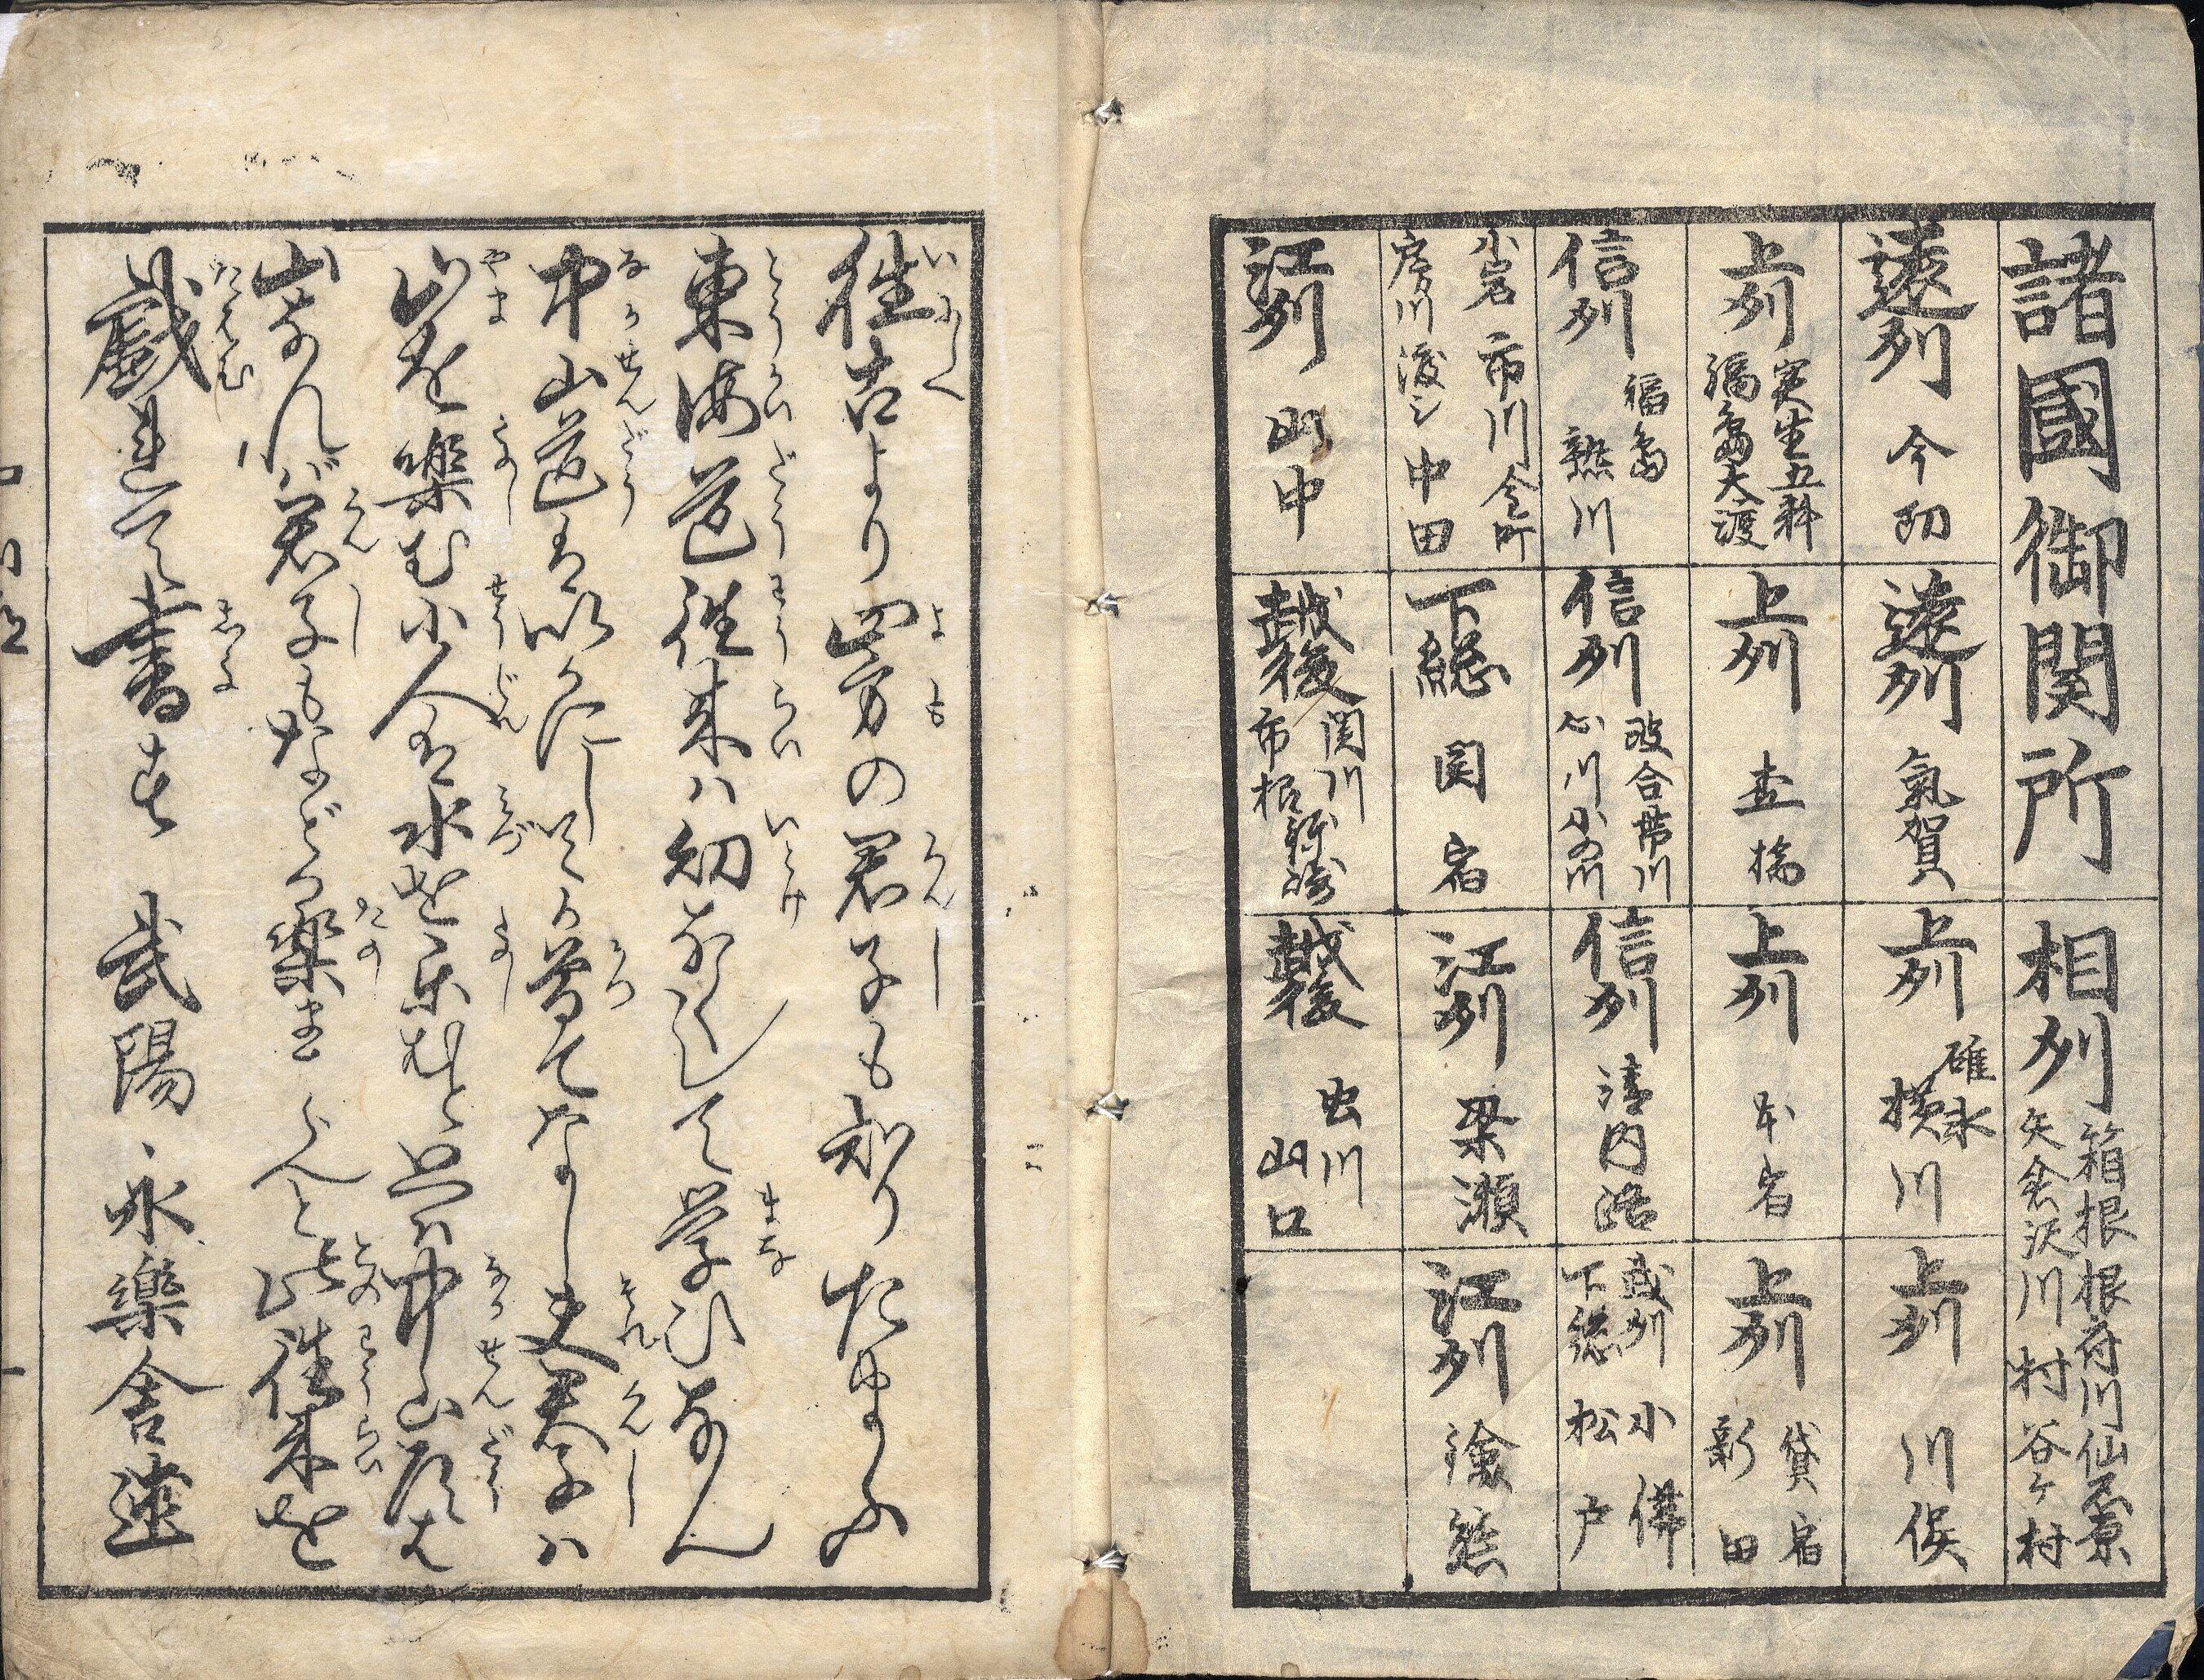 諸國御関所
相州 箱根 根府川 仙石原
矢倉沢 川村 谷ヶ村
遠州 今切
遠州 氣賀
上州 碓氷
横川
上州 川俣
上州 実正 五料
福島 大渡
上州 杢橋
上州 本宿
上州 貸宿
新田
信州 福島
熱川
信州 波合 帯川
心川 小の川
信州 清内路
武州 小佛
下総 松戸
小岩 市川 金町
房川渡シ 中田
下総 関宿
江州 梁瀬
江州 𨫤熊
江州 山中
越後 関川
市振 鉢崎
越後 虫川
山口
往古より四方の君子も知りたまふ
東海道往来ハ幼なくして学びなん
中山道は以かにしてか曽てなし夫君子ハ
山を楽む小人は水を楽むと然ハ中山道は
山なれバ君子もなどか楽まざらんと此往来を
戯れに書す 武陽 永樂舎迂